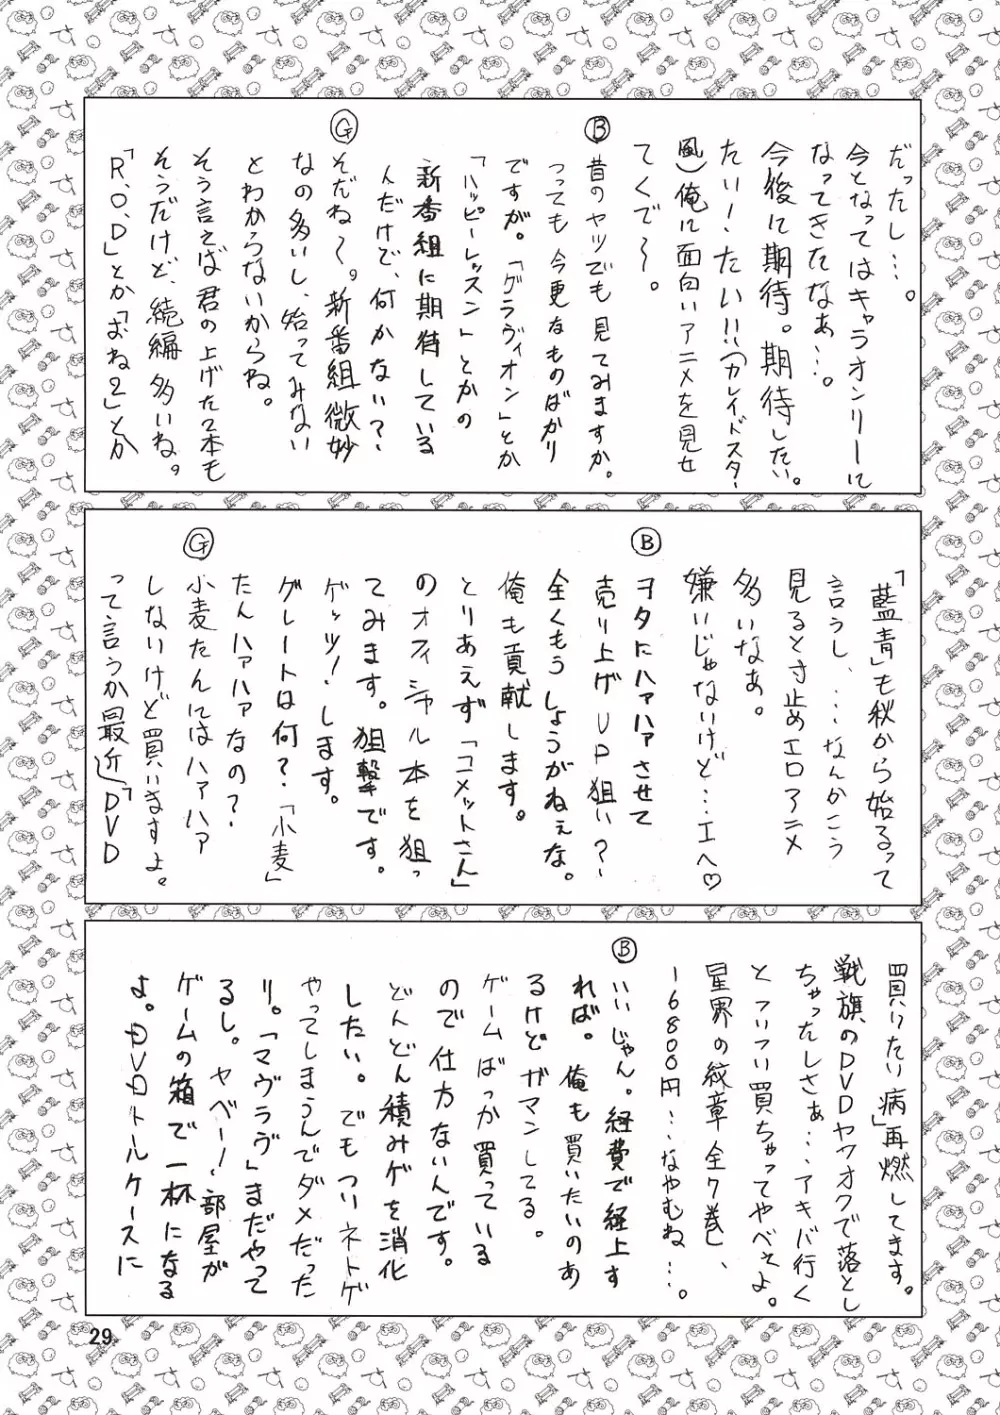 だったし…。
今となってはキャラオンリーに
なってきたなぁ…。
今後に期待。期待したい。
たい！たい!!（カレイドスター
風）俺に面白いアニメを見せ
てくで〜。
Ⓑ
昔のヤツでも見てみますか。
つっても今更なものばかり
ですが。「グラヴィオン」とか
「ハッピーレッスン」とかの
新番組に期待している
んだけで、何かない？
Ⓖ
そだね〜。新番組微妙
なの多いし、始ってみない
とわからないからね。
そう言えば君の上げた2本も
そうだけど、続編多いね。
「R.O.D」とか「おね2」とか
「藍青」も秋から始るって
言うし、…なんかこう
見ると寸止めエロアニメ
多いなぁ。
嫌いじゃないけど…エヘ♡
Ⓑ
ヲタにハァハァさせて
売り上げUP狙い？
全くもうしょうがねぇな。
俺も貢献します。
とりあえず「コメットさん」
のオフィシャル本を狙っ
てみます。狙撃です。
ゲッツ！します。
グレートは何？「小麦」
たんハァハァなの？
Ⓖ
小麦たんにはハァハァ
しないけど買いますよ。
って言うか最近「DVD
買いたい病」再燃してます。
戦旗のDVDヤフオクで落とし
ちゃったしさぁ…アキバ行く
とついつい買ちゃってやべぇよ。
星界の紋章全7巻、
16800円…なやむね…。
Ⓑ
いいじゃん。経費で経上す
れば。俺も買いたいのあ
るけどガマンしてる。
ゲームばっか買っている
ので仕方ないんです。
どんどん積みゲを消化
したい。でもついネトゲ
やってしまうんでダメだった
リ。「マヴラヴ」まだやって
るし。ヤベー！部屋が
ゲームの箱で一杯になる
よ。DVDトルケースに
29